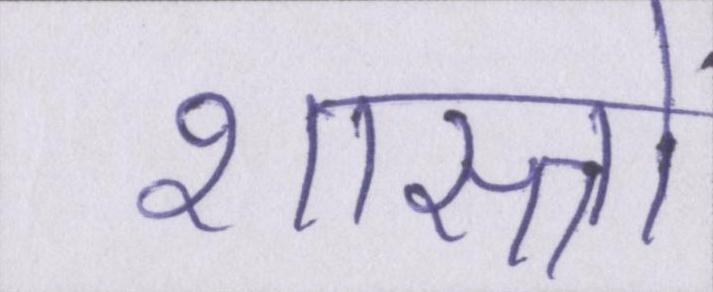 शास्त्रों